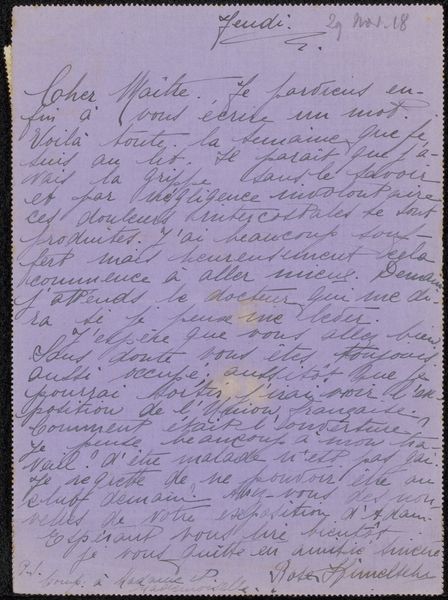 Jeudi.
29 Nov. 18
Cher Maître. Je parviens en-
fin à vous écrire un mot.
Voilà toute la semaine que je
suis au lit. Il parait que j'a-
vais la grippe sans le savoir
et par négligence involontaire
ces douleurs intercostales se sont
produites. J'ai beaucoup souf-
fert mais heureusement cela
commence à aller mieux. Demain
j'attends le docteur qui me di-
ra si je peux me lever.
J'espère que vous allez bien.
Sans doute vous êtes toujours
aussi occupé. aussitôt que je
pourrai sortir, j'irai voir l'ex-
position de l'Union française,
Comment était l'ouverture?
Je pense beaucoup à mon tra-
vail. d'être malade n'est pas gai.
Je regrette de ne pouvoir être au
club demain. Avez-vous des nou-
velles de votre exposition d'
Espérant vous lire bientôt
je vous quitte en amitié sincère
Rose
P.S. à Madame et
Mademoiselle.